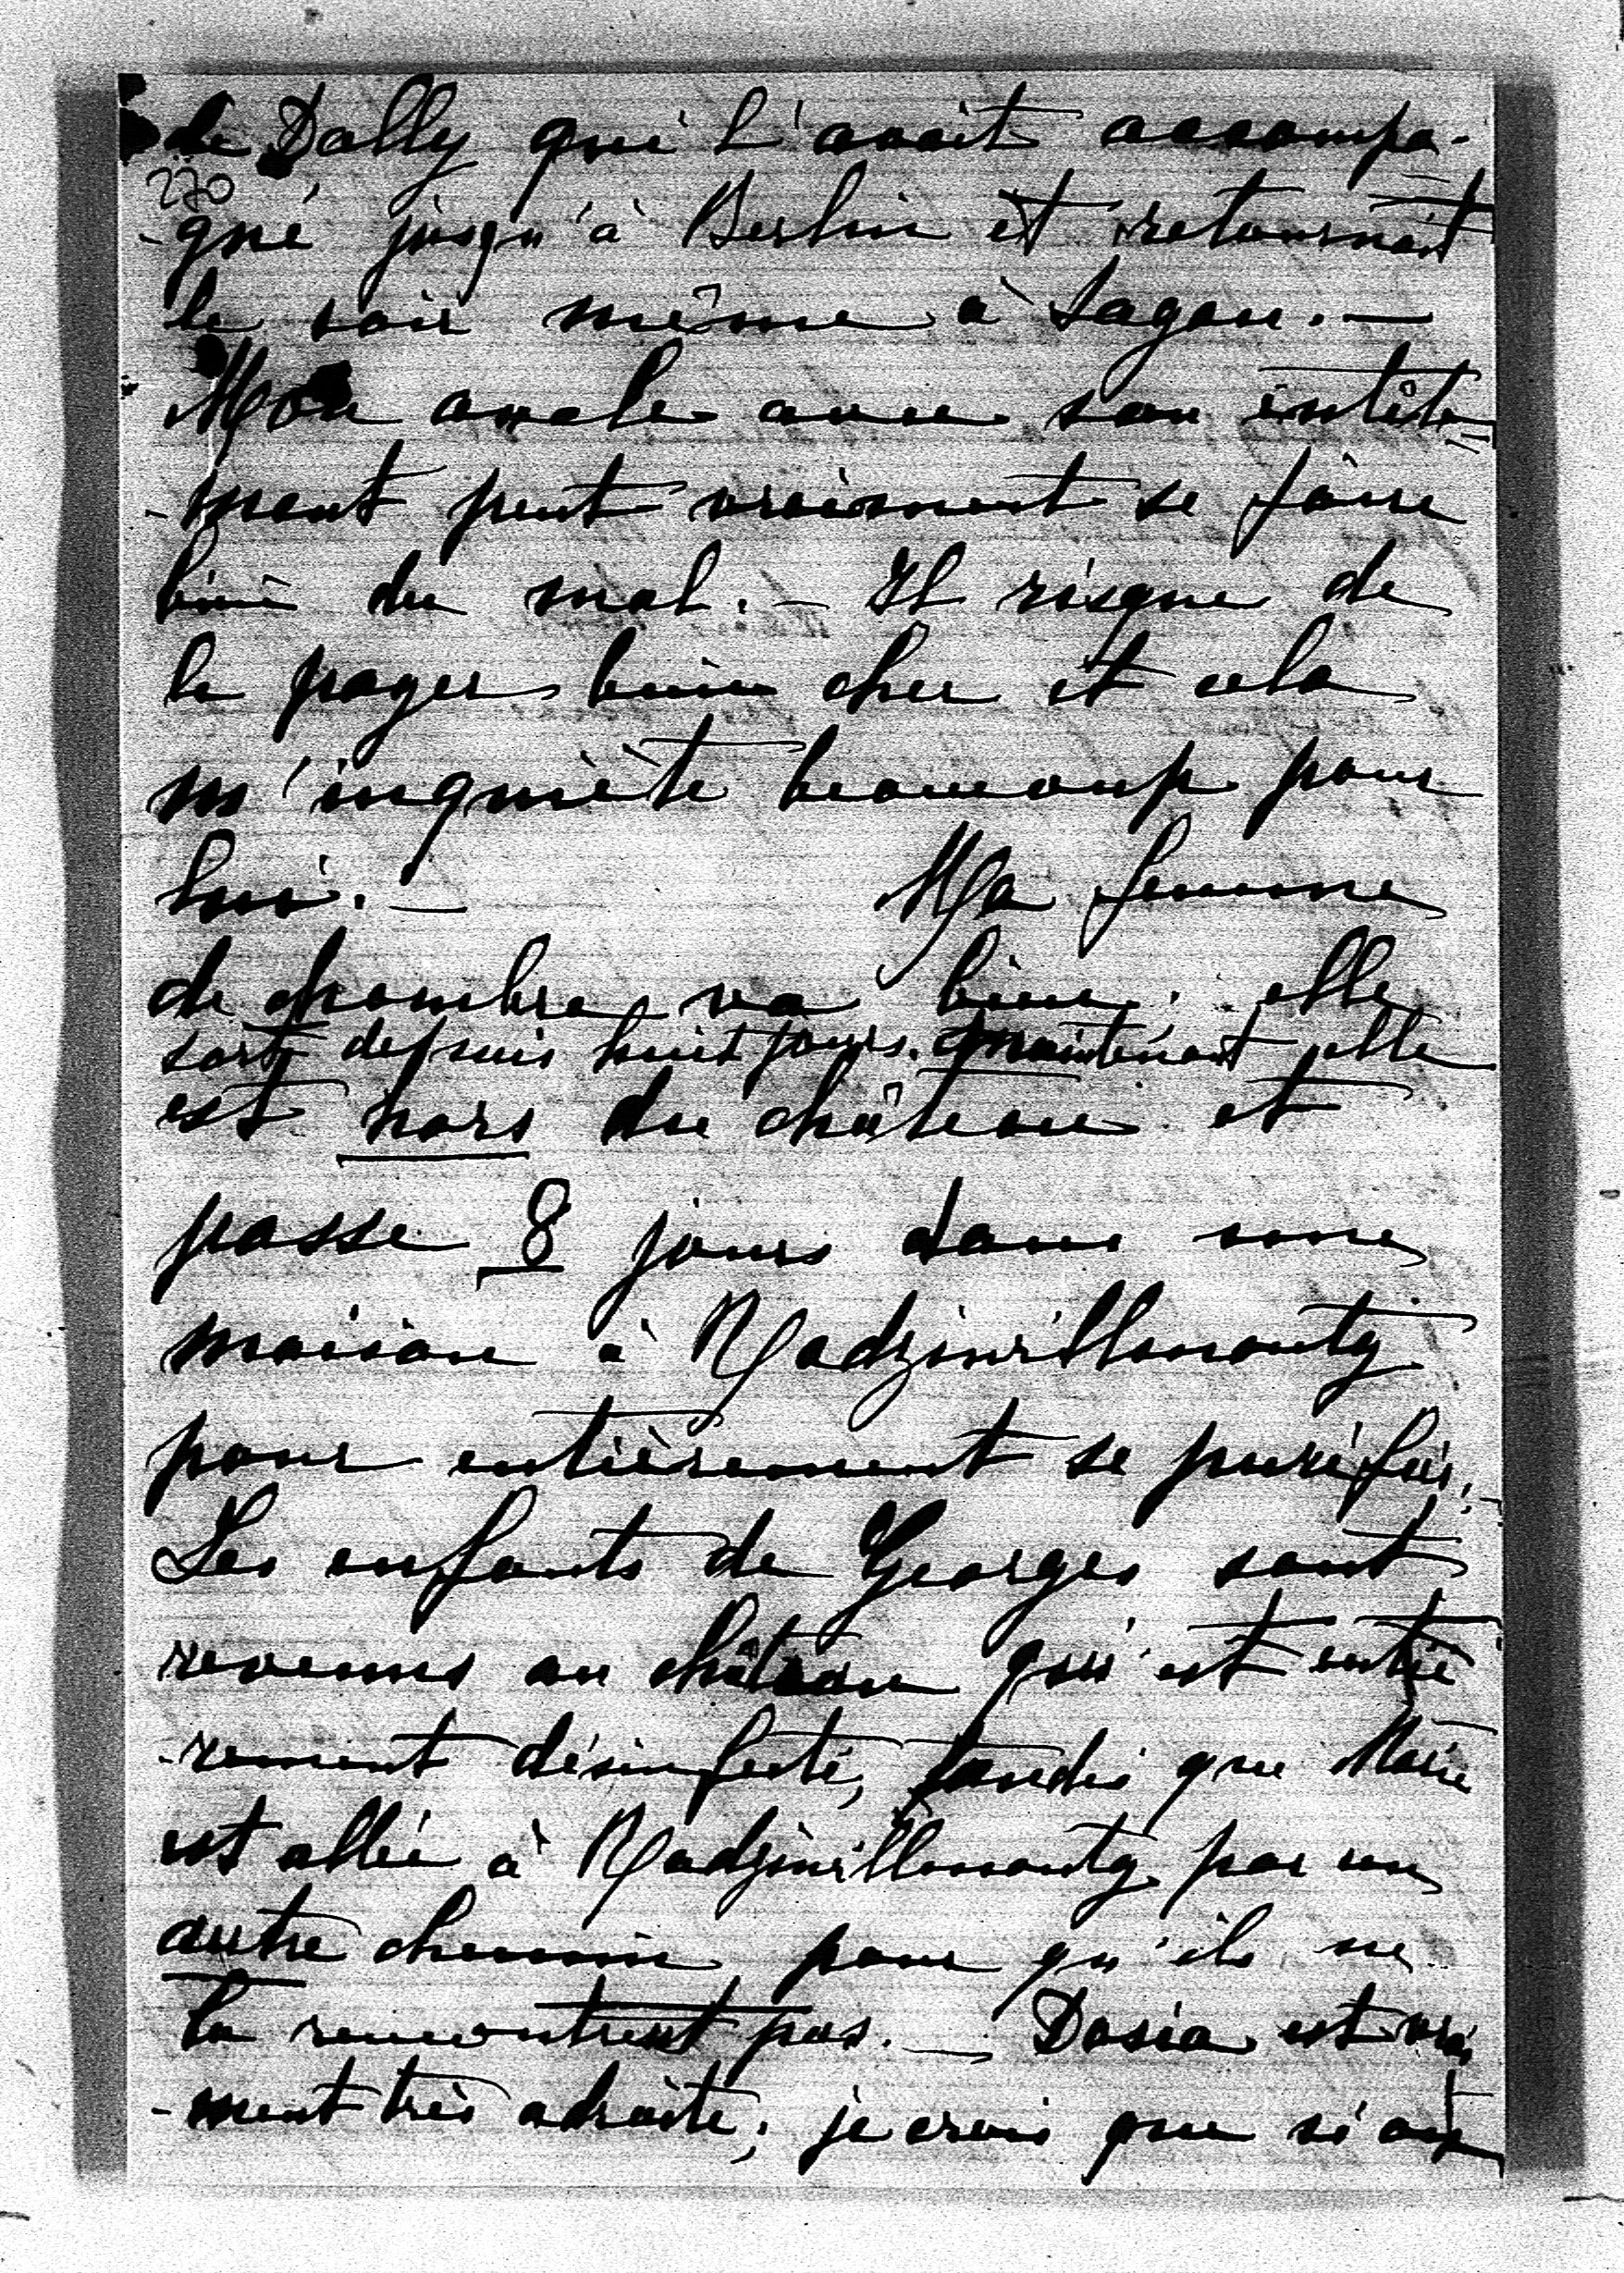 de Dolly qui l'avait accompa-
270
-gné jusqu'à Berlin et retournait
le soir même à Sagan. —
Mon oncle avec son entête
-ment peut vraiment se faire
bien du mal. — Il risque de
le payer bien cher et cela
m'inquiète beaucoup pour
lui. — Ma femme
de chambre va bien; elle
sort depuis huit jours. maintenant elle
est hors du château et
passe 8 jours dans une
maison à Radziwillmonty
pour entièrement se purifier.
Les enfants de Georges sont
revenus au château qui est entiè
-rement désinfecté, tandis que Marie
est allée à Radziwillmonty par un
autre chemin pour qu'ils ne
la rencontrent pas. — Dosia est vrai
-ment très adroite; je crois que si